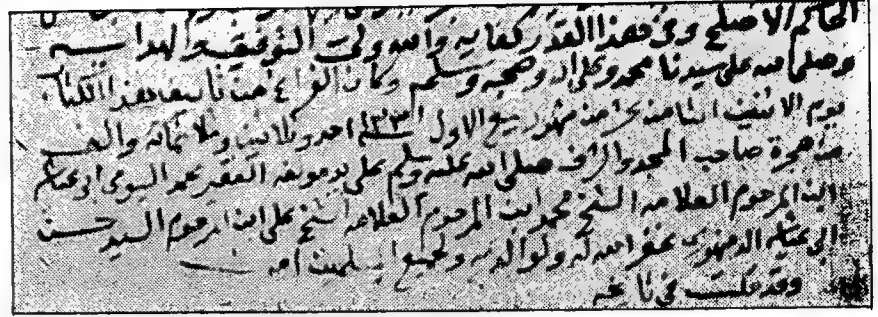 الحاكم الاصلح وفي هذا القدر كفاية والله ولي التوفيق والهداية
وصلى الله على سيدنا محمد وعلى اله وصحبه وسلم وكان الفراغ من تأليف هذا الكتاب
يوم الاثنين الثامن من شهر ربيع الاول ١٣٣١ احد وثلاثين وثلاثمائة والف
من هجرة صاحب المجد والشرف صلى الله عليه وسلم على يد مؤلفه الفقير محمد البيومي ابو عياشه
ابن المرحوم العلامه الشيخ محمد ابن المرحوم العلامه الشيخ على ابن المرحوم السيد حسن
ابى عياشه الدمنهورى غفر الله له ولوالديه ولجميع المسلمين امين
وقد